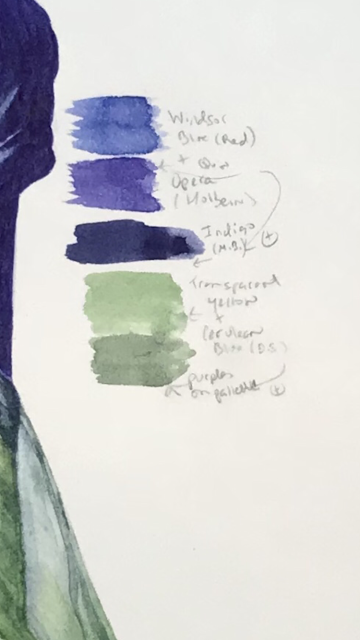 Windsor
Blue (Red)
+
Opera
(Holbein)
Indigo
(M.B.) +
Transparent
yellow
+
Cerulean
Blue (D.S)
purples
on pallette +